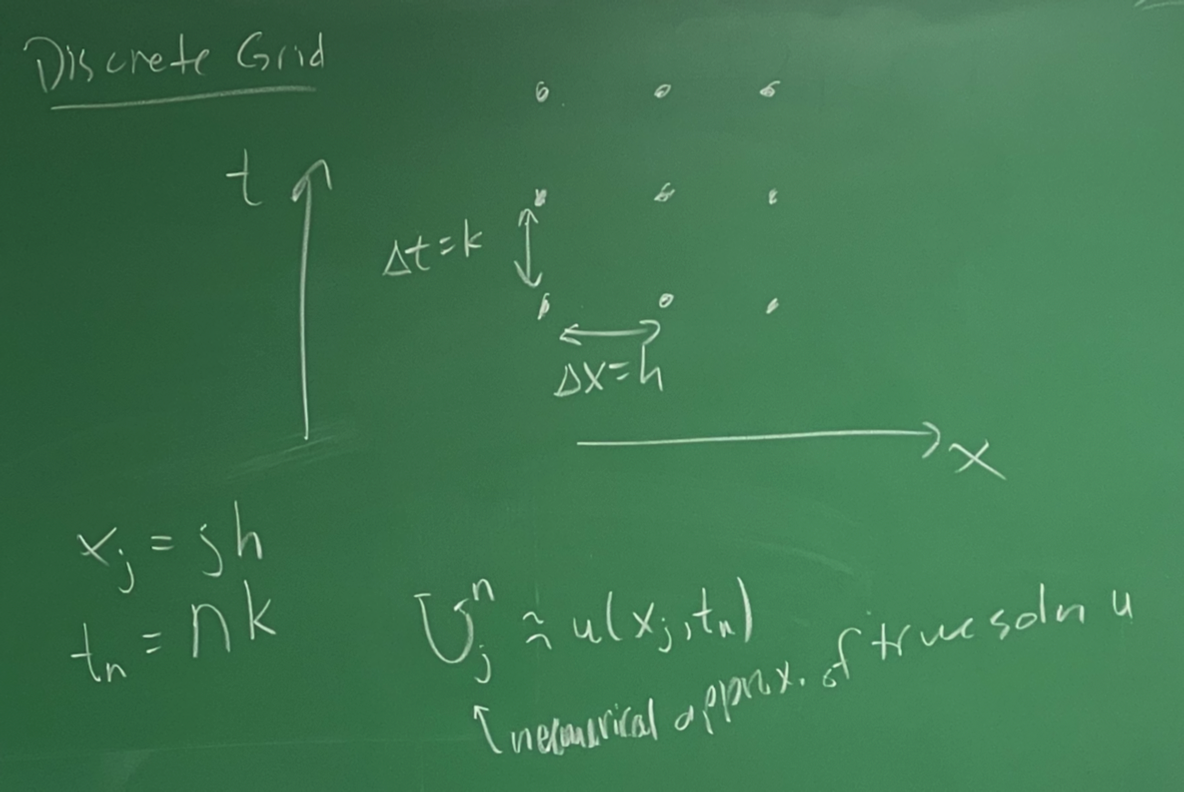 Discrete Grid
t
Δt=k
Δx=h
x
x_j = jh
t_n = nk
U_j^n ≈ u(x_j, t_n)
↑ numerical approx. of true soln u